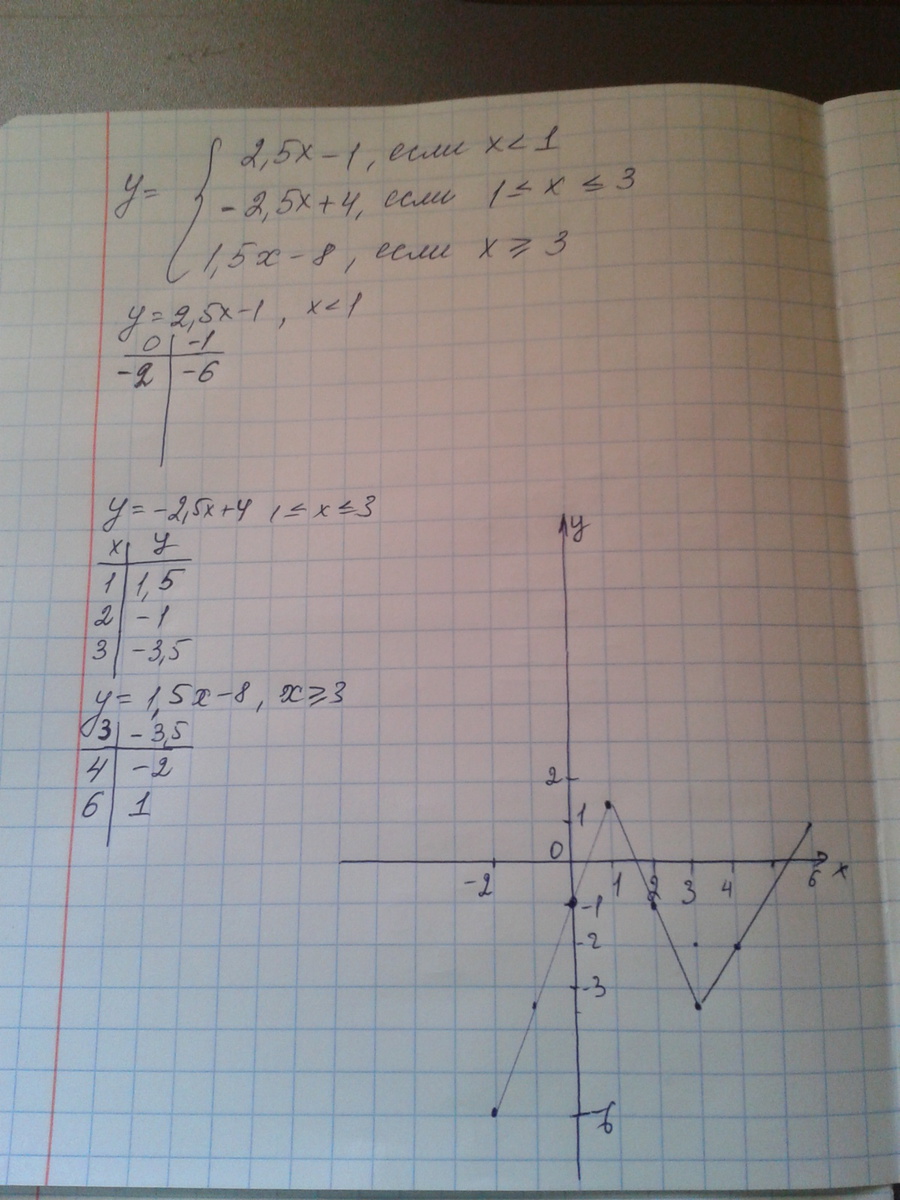 y= { 2,5x-1, если x<1
-2,5x+4, если 1≤x≤3
1,5x-8, если x≥3
y=2,5x-1, x<1
0 | -1
-2 | -6
y=-2,5x+4 1≤x≤3
x | y
1 | 1,5
2 | -1
3 | -3,5
y=1,5x-8, x≥3
3 | -3,5
4 | -2
6 | 1
y
2
1
0
-2 1 2 3 4 6 x
-1
-2
-3
-6